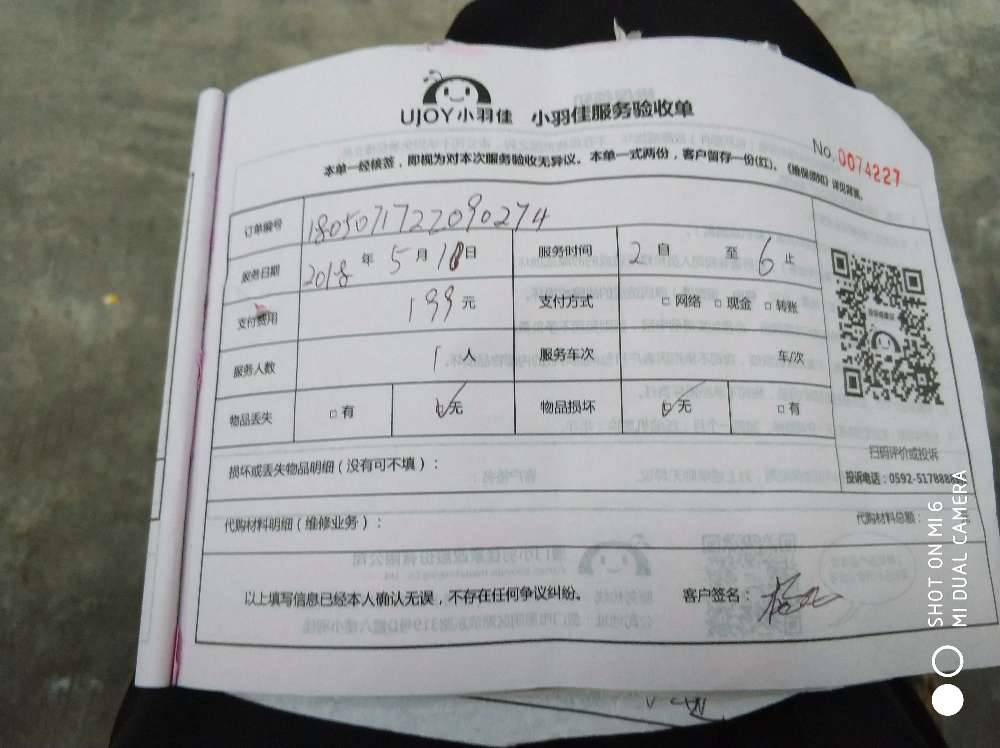 UJOY小羽佳 小羽佳服务验收单
No.0074227
本单一经核签，即视为对本次服务验收无异议。本单一式两份，客户留存一份(红)。《维保须知》详见背面。
订单编号 1805071722090274
服务日期 2018年5月10日 服务时间 2自 至6止
支付费用 199元 支付方式 □网络 □现金 □转账
服务人数 1人 服务车次 车/次
物品丢失 □有 ☑无 物品损坏 ☑无 □有
扫码评价或投诉
损坏或丢失物品明细（没有可不填）：
投诉电话：0592-517888
代购材料明细（维修业务）：
代购材料总额：
以上填写信息已经本人确认无误，不存在任何争议纠纷。 客户签名：
SHOT ON MI 6
MI DUAL CAMERA